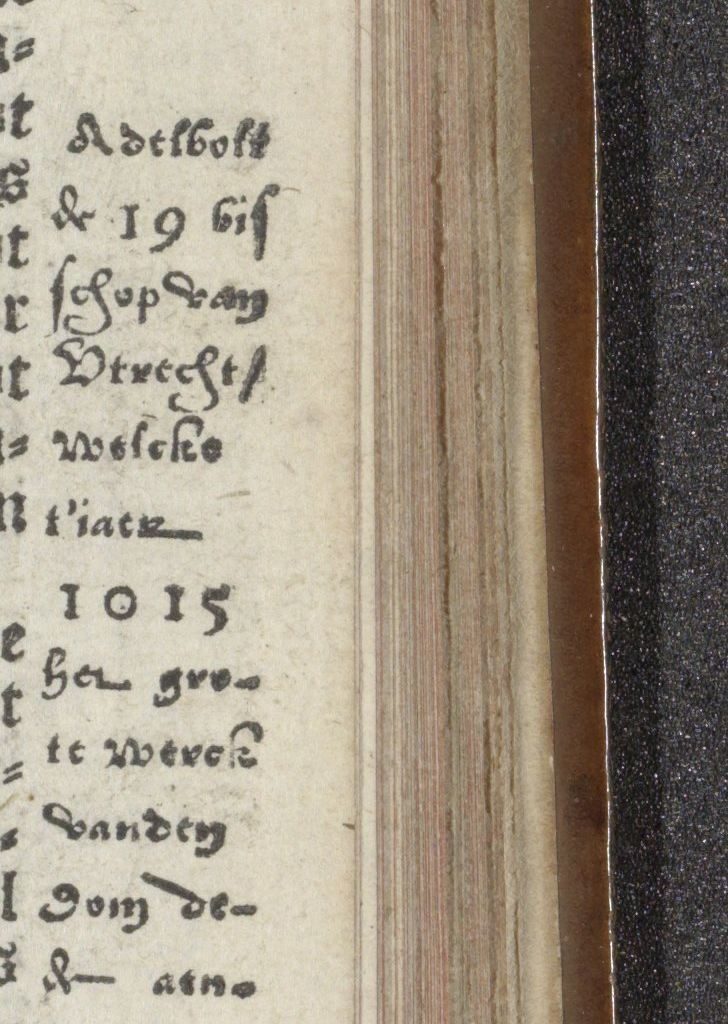 Adelbolt
de 19 bis
schop van
Vtrecht/
welcke
t'iaer
1015
het gro-
te werck
vanden
Dom de-
de aen-